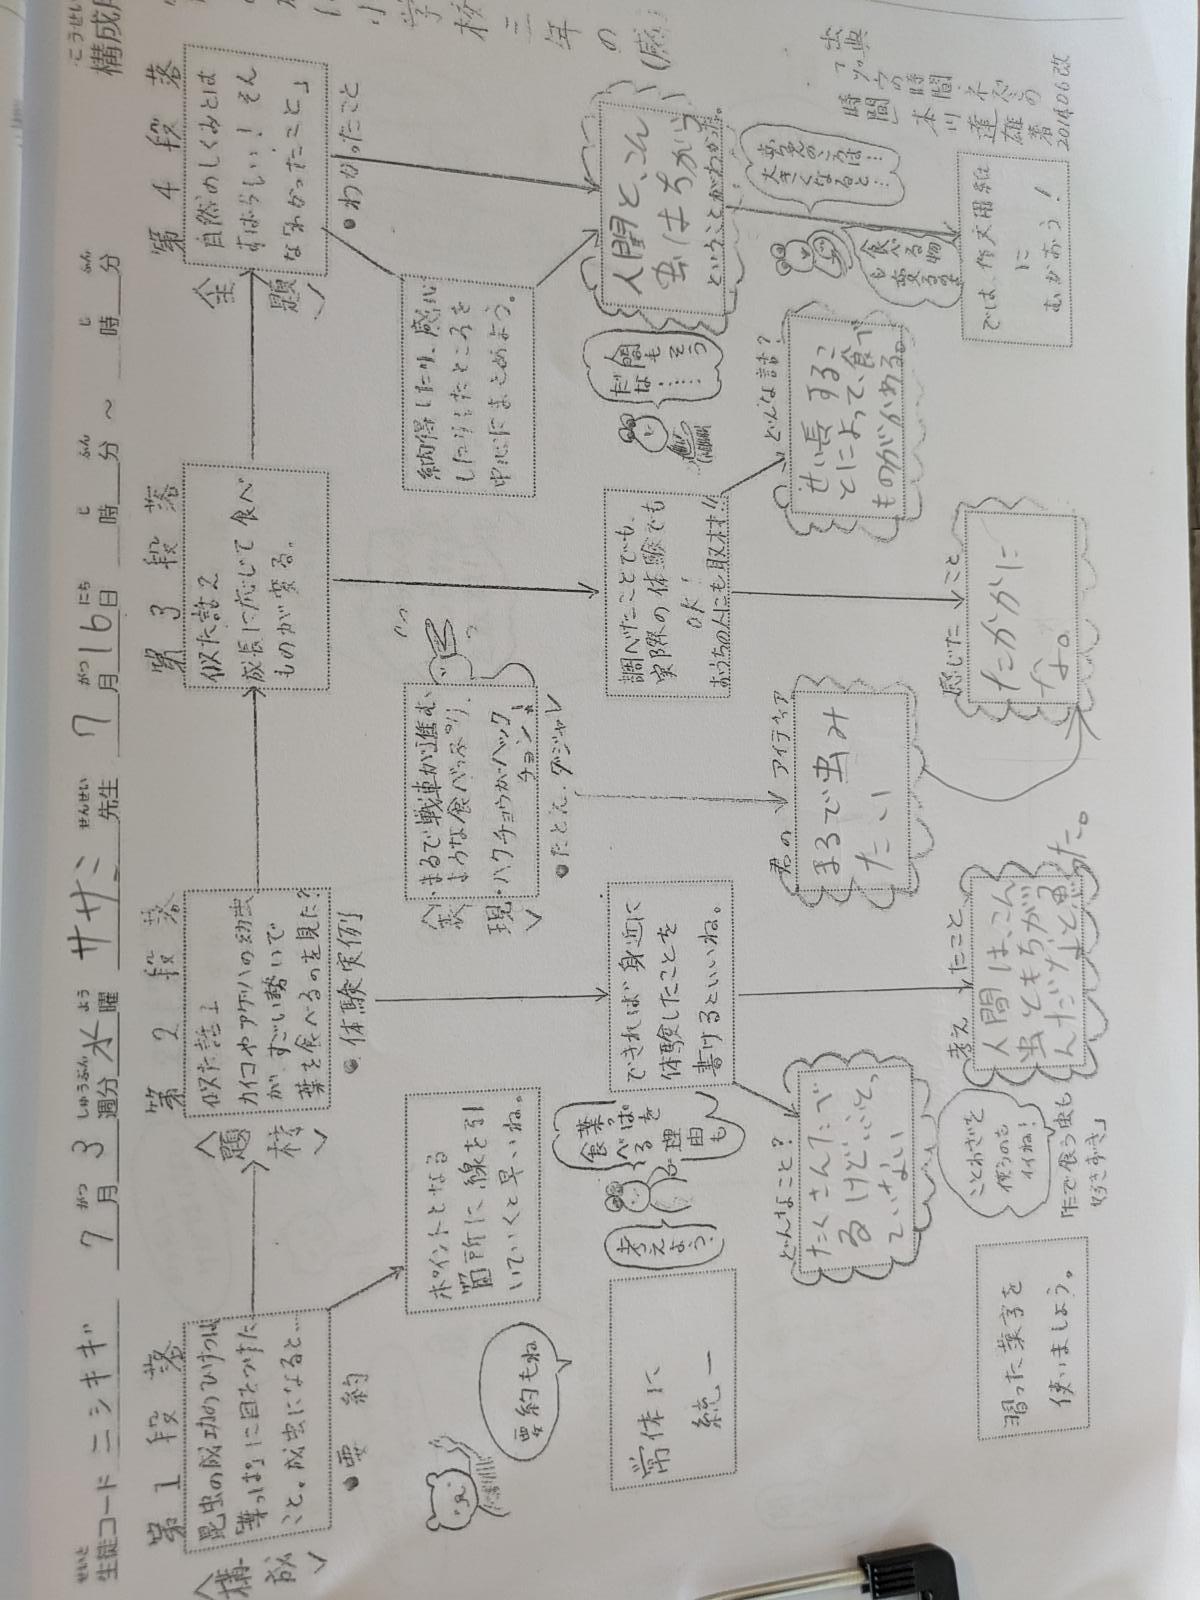 こうせい
構成用
せいと
生徒コード ニシキギ 7月3週分 水曜 サササ先生 7月16日 __時__分～__時__分
がつ しゅうぶん よう せんせい がつ にち じ ふん じ ふん
小学校三年の(感
<構成>
第1段落
昆虫の成功のひけつは
「葉っぱ」に目をつけた
こと。成虫になると…
●要約
ポイントとなる
箇所に線を引
いていくと早いね。
要約もね
常体に
統一
習った漢字を
使いましょう。
<題材>
第2段落
似た話1
カイコやアゲハの幼虫
が、すごい勢いで
葉を食べるのを見た?
●体験実例
できれば身近に
体験したことを
書けるといいね。
葉っぱ
を
食べる
理由も
考え
よう?
どんなこと?
たくさんたべ
るけどにどっ
ていない
考えたこと
人間は、こん
虫ともちが
んだなと思
った。
ことわざを
使うのも
イイね!
「作で食う虫も
好きずき」
<表現>
・まるで戦車が進む
ような食べっぷり、
・ハクチョウがハック
チョン!
●たとえ・ダジャレ
君のアイデア
まるで虫み
たい
第3段落
似た話2
成長に応じて食べ
ものが変る。
調べたことでも、
実際の体験でも
OK!
おうちの人にも取材!!
どんな話?
せい長するこ
とによって、食べ
ものがかわる。
感じたこと
たしかに
な。
<主題>
第4段落
自然のしくみとは
すばらしい! そん
なわかったこと」
●わかったこと
納得したり、感心
したりしたところを
中心にまとめよう。
人間も
そう
だな……
人間と、こん
虫はちがう
ということがわかった。
赤ちゃんのころは…
大きくなると…
食べる物
も変る
では、作文用紙
に
むかおう!
出典
「ゾウの時間ネズミの
時間」本川達雄著
201406改